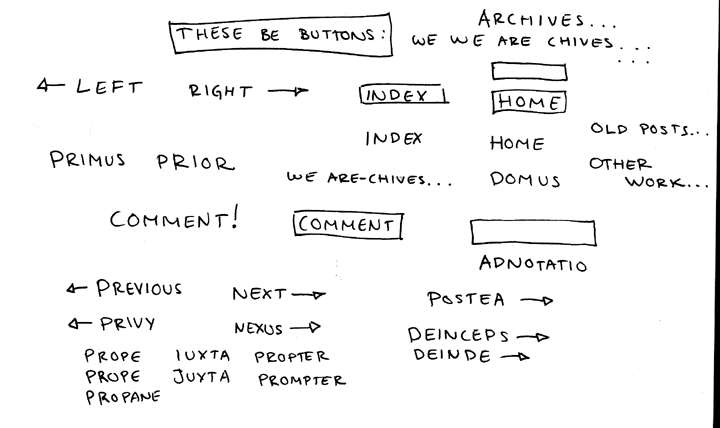 THESE BE BUTTONS:
ARCHIVES...
WE WE ARE CHIVES...
...
← LEFT RIGHT → INDEX HOME
INDEX HOME OLD POSTS...
PRIMUS PRIOR WE ARE-CHIVES... DOMUS OTHER
WORK...
COMMENT! COMMENT
ADNOTATIO
← PREVIOUS NEXT → POSTEA →
← PRIVY NEXUS → DEINCEPS →
PROPE IUXTA PROPTER DEINDE →
PROPE JUXTA PROMPTER
PROPANE